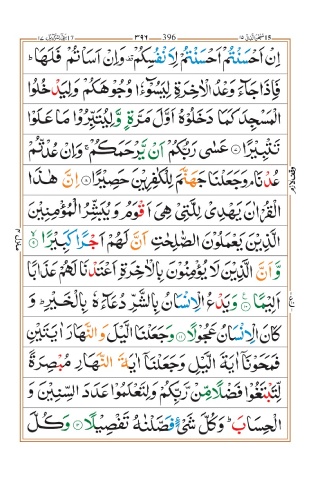 396 ٣٩٦
اِنْ اَحْسَنْتُمْ اَحْسَنْتُمْ لِاَنْفُسِكُمْ ۫ وَاِنْ اَسَاْتُمْ فَلَهَا ؕ
فَاِذَا جَآءَ وَعْدُ الْاٰخِرَةِ لِيَسُوْٓءٗا وُجُوْهَكُمْ وَلِيَدْخُلُوا
الْمَسْجِدَ كَمَا دَخَلُوْهُ اَوَّلَ مَرَّةٍ وَّلِيُتَبِّرُوْا مَا عَلَوْا
تَتْبِيْرًا ۝ عَسٰى رَبُّكُمْ اَنْ يَّرْحَمَكُمْ ۚ وَاِنْ عُدْتُّمْ
عُدْنَا ۘ وَجَعَلْنَا جَهَنَّمَ لِلْكٰفِرِيْنَ حَصِيْرًا ۝ اِنَّ هٰذَا
الْقُرْاٰنَ يَهْدِيْ لِلَّتِيْ هِيَ اَقْوَمُ وَيُبَشِّرُ الْمُؤْمِنِيْنَ
الَّذِيْنَ يَعْمَلُوْنَ الصّٰلِحٰتِ اَنَّ لَهُمْ اَجْرًا كَبِيْرًا ۝
وَّاَنَّ الَّذِيْنَ لَا يُؤْمِنُوْنَ بِالْاٰخِرَةِ اَعْتَدْنَا لَهُمْ عَذَابًا
اَلِيْمًا ۝ وَيَدْعُ الْاِنْسَانُ بِالشَّرِّ دُعَآءَهٗ بِالْخَيْرِ ؕ وَ
كَانَ الْاِنْسَانُ عَجُوْلًا ۝ وَجَعَلْنَا الَّيْلَ وَالنَّهَارَ اٰيَتَيْنِ
فَمَحَوْنَآ اٰيَةَ الَّيْلِ وَجَعَلْنَآ اٰيَةَ النَّهَارِ مُبْصِرَةً
لِّتَبْتَغُوْا فَضْلًا مِّنْ رَّبِّكُمْ وَلِتَعْلَمُوْا عَدَدَ السِّنِيْنَ وَ
الْحِسَابَ ؕ وَكُلَّ شَيْءٍ فَصَّلْنٰهُ تَفْصِيْلًا ۝ وَكُلَّ